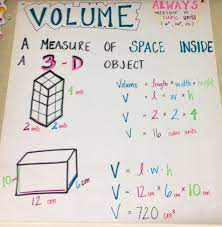 VOLUME
ALWAYS
measure in
cubic units
A MEASURE OF SPACE INSIDE
A 3-D OBJECT
Volume = length × width × height
V = l × w × h
V = 2 × 2 × 4
V = 16 cubic units
4 units
2 units
2 units
V = l · w · h
V = 12 cm × 6 cm × 10 cm
V = 720 cm³
10 cm
6 cm
12 cm